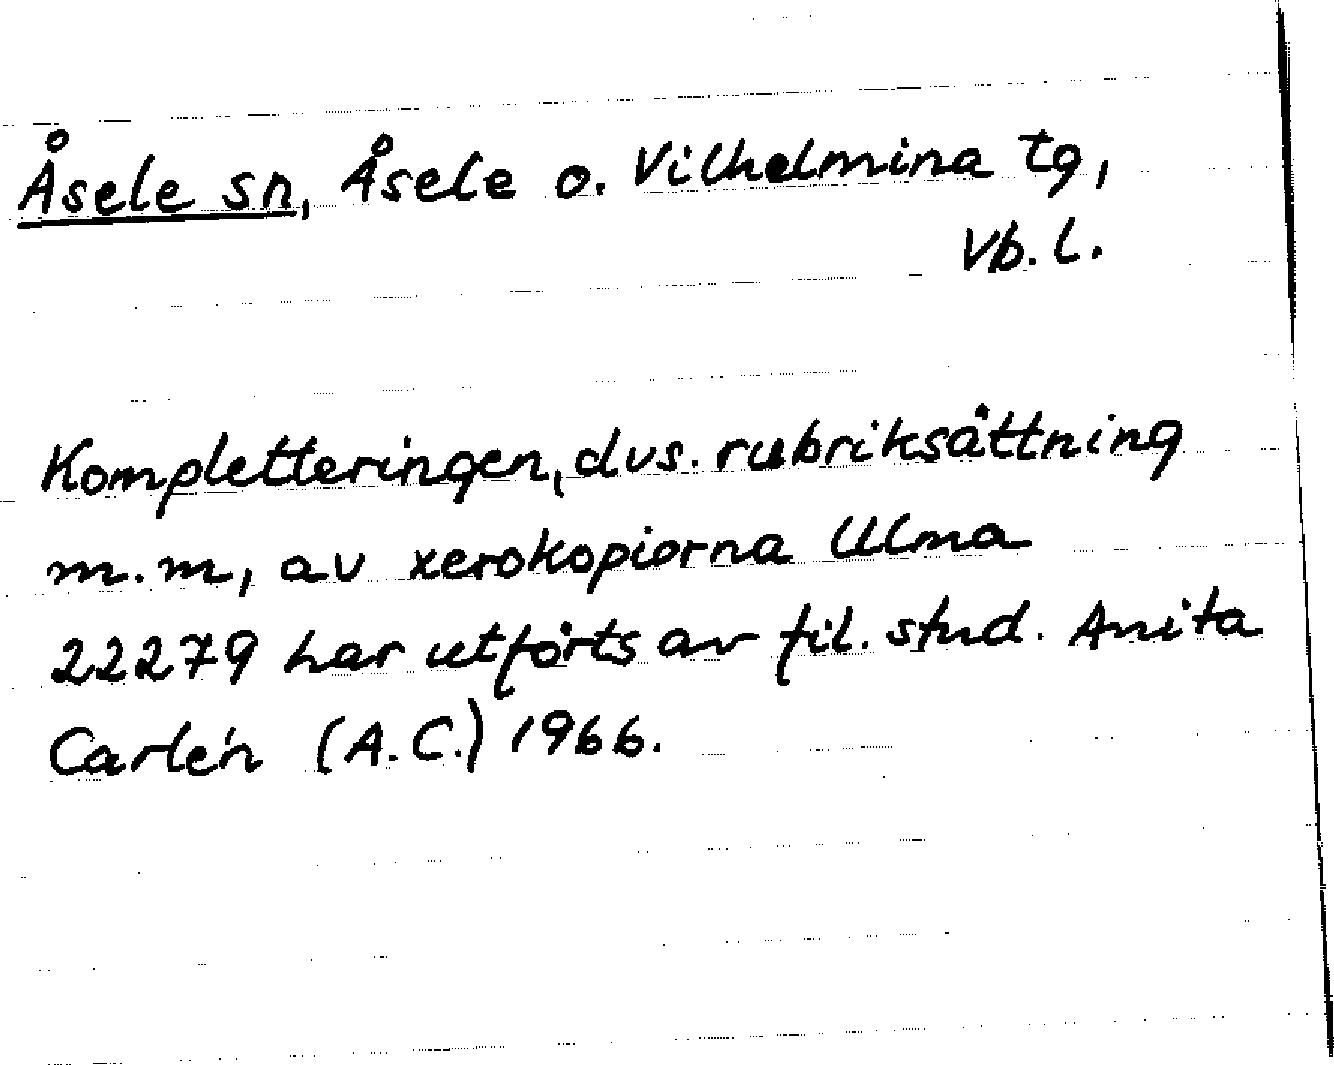 Åsele sn, Åsele o. Vilhelmina tg,
Vb. l.
Kompletteringen, dvs. rubriksättning
m.m, av xerokopiorna Ulma
22279 har utförts av fil. stud. Anita
Carlén (A.C.) 1966.